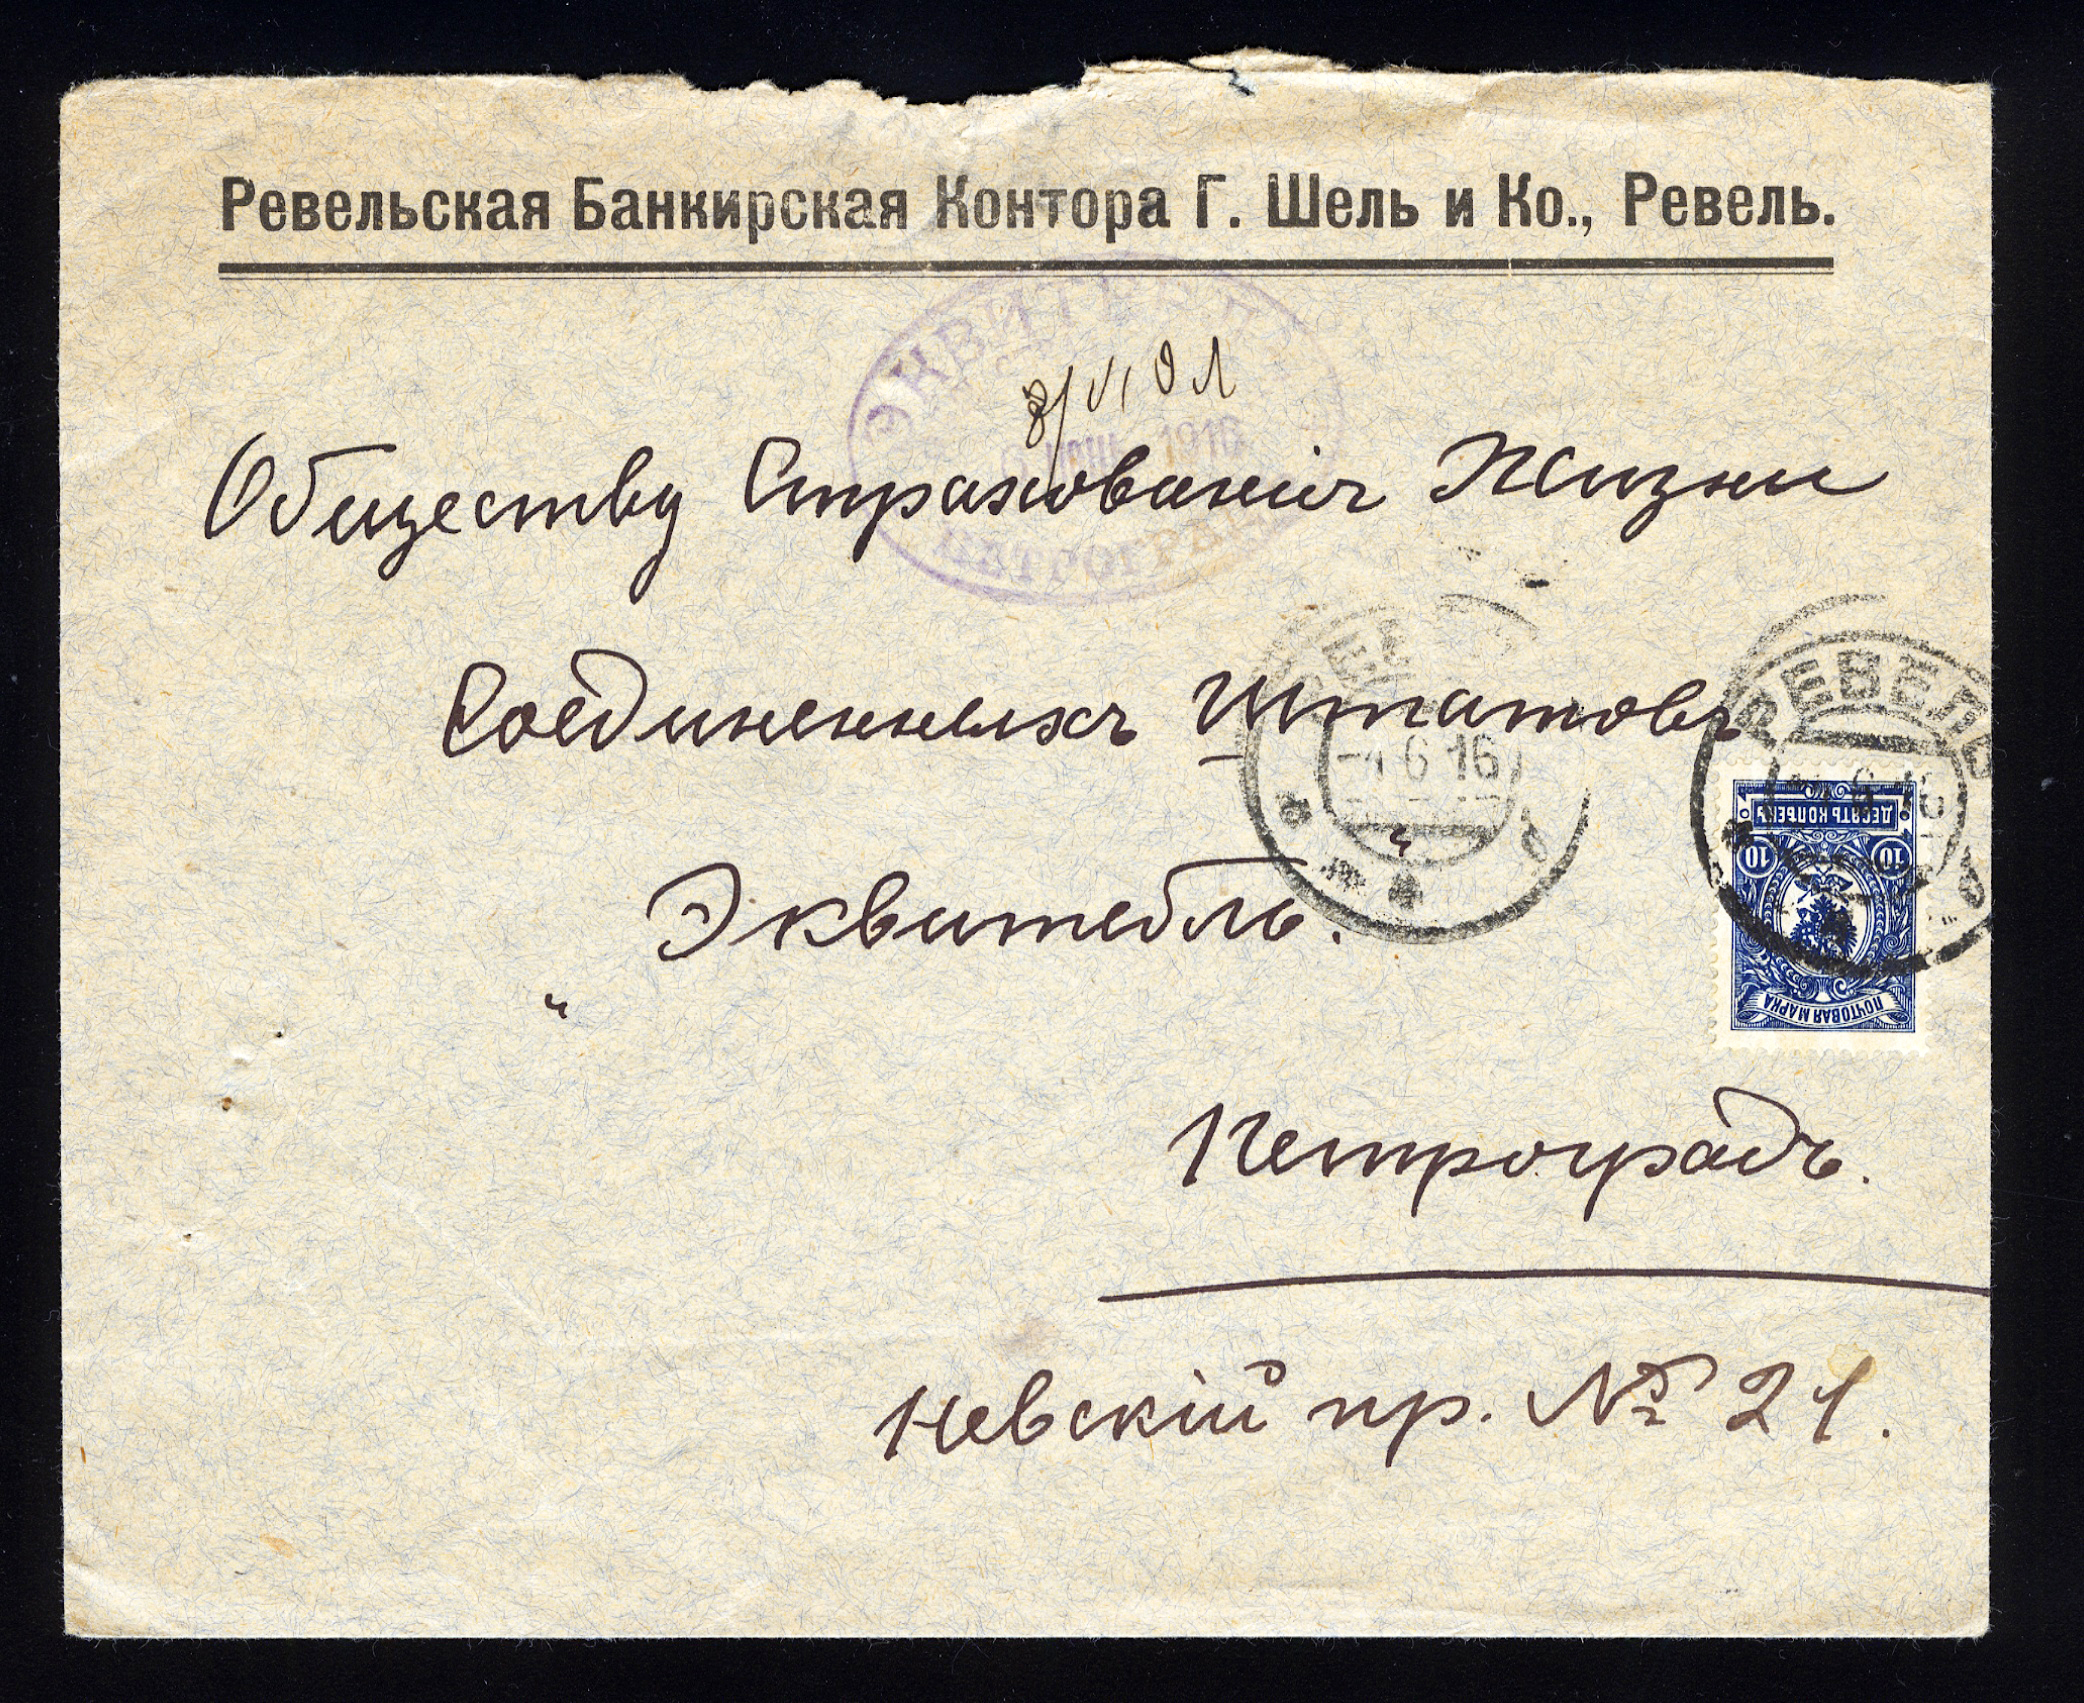 Ревельская Банкирская Контора Г. Шель и Ко., Ревель.
ЭКВИТЕБЛ
8/VI
1916
Обществу Страхованія Жизни
ПЕТРОГРАД
Соединенныхъ Штатовъ
РЕВЕЛЬ
-4 6 16
РЕВЕЛЬ
ДЕСЯТЬ КОПѢЕКЪ
10 10
ПОЧТОВАЯ МАРКА
„Эквитебль“.
Петроградъ.
Невскій пр. № 21.